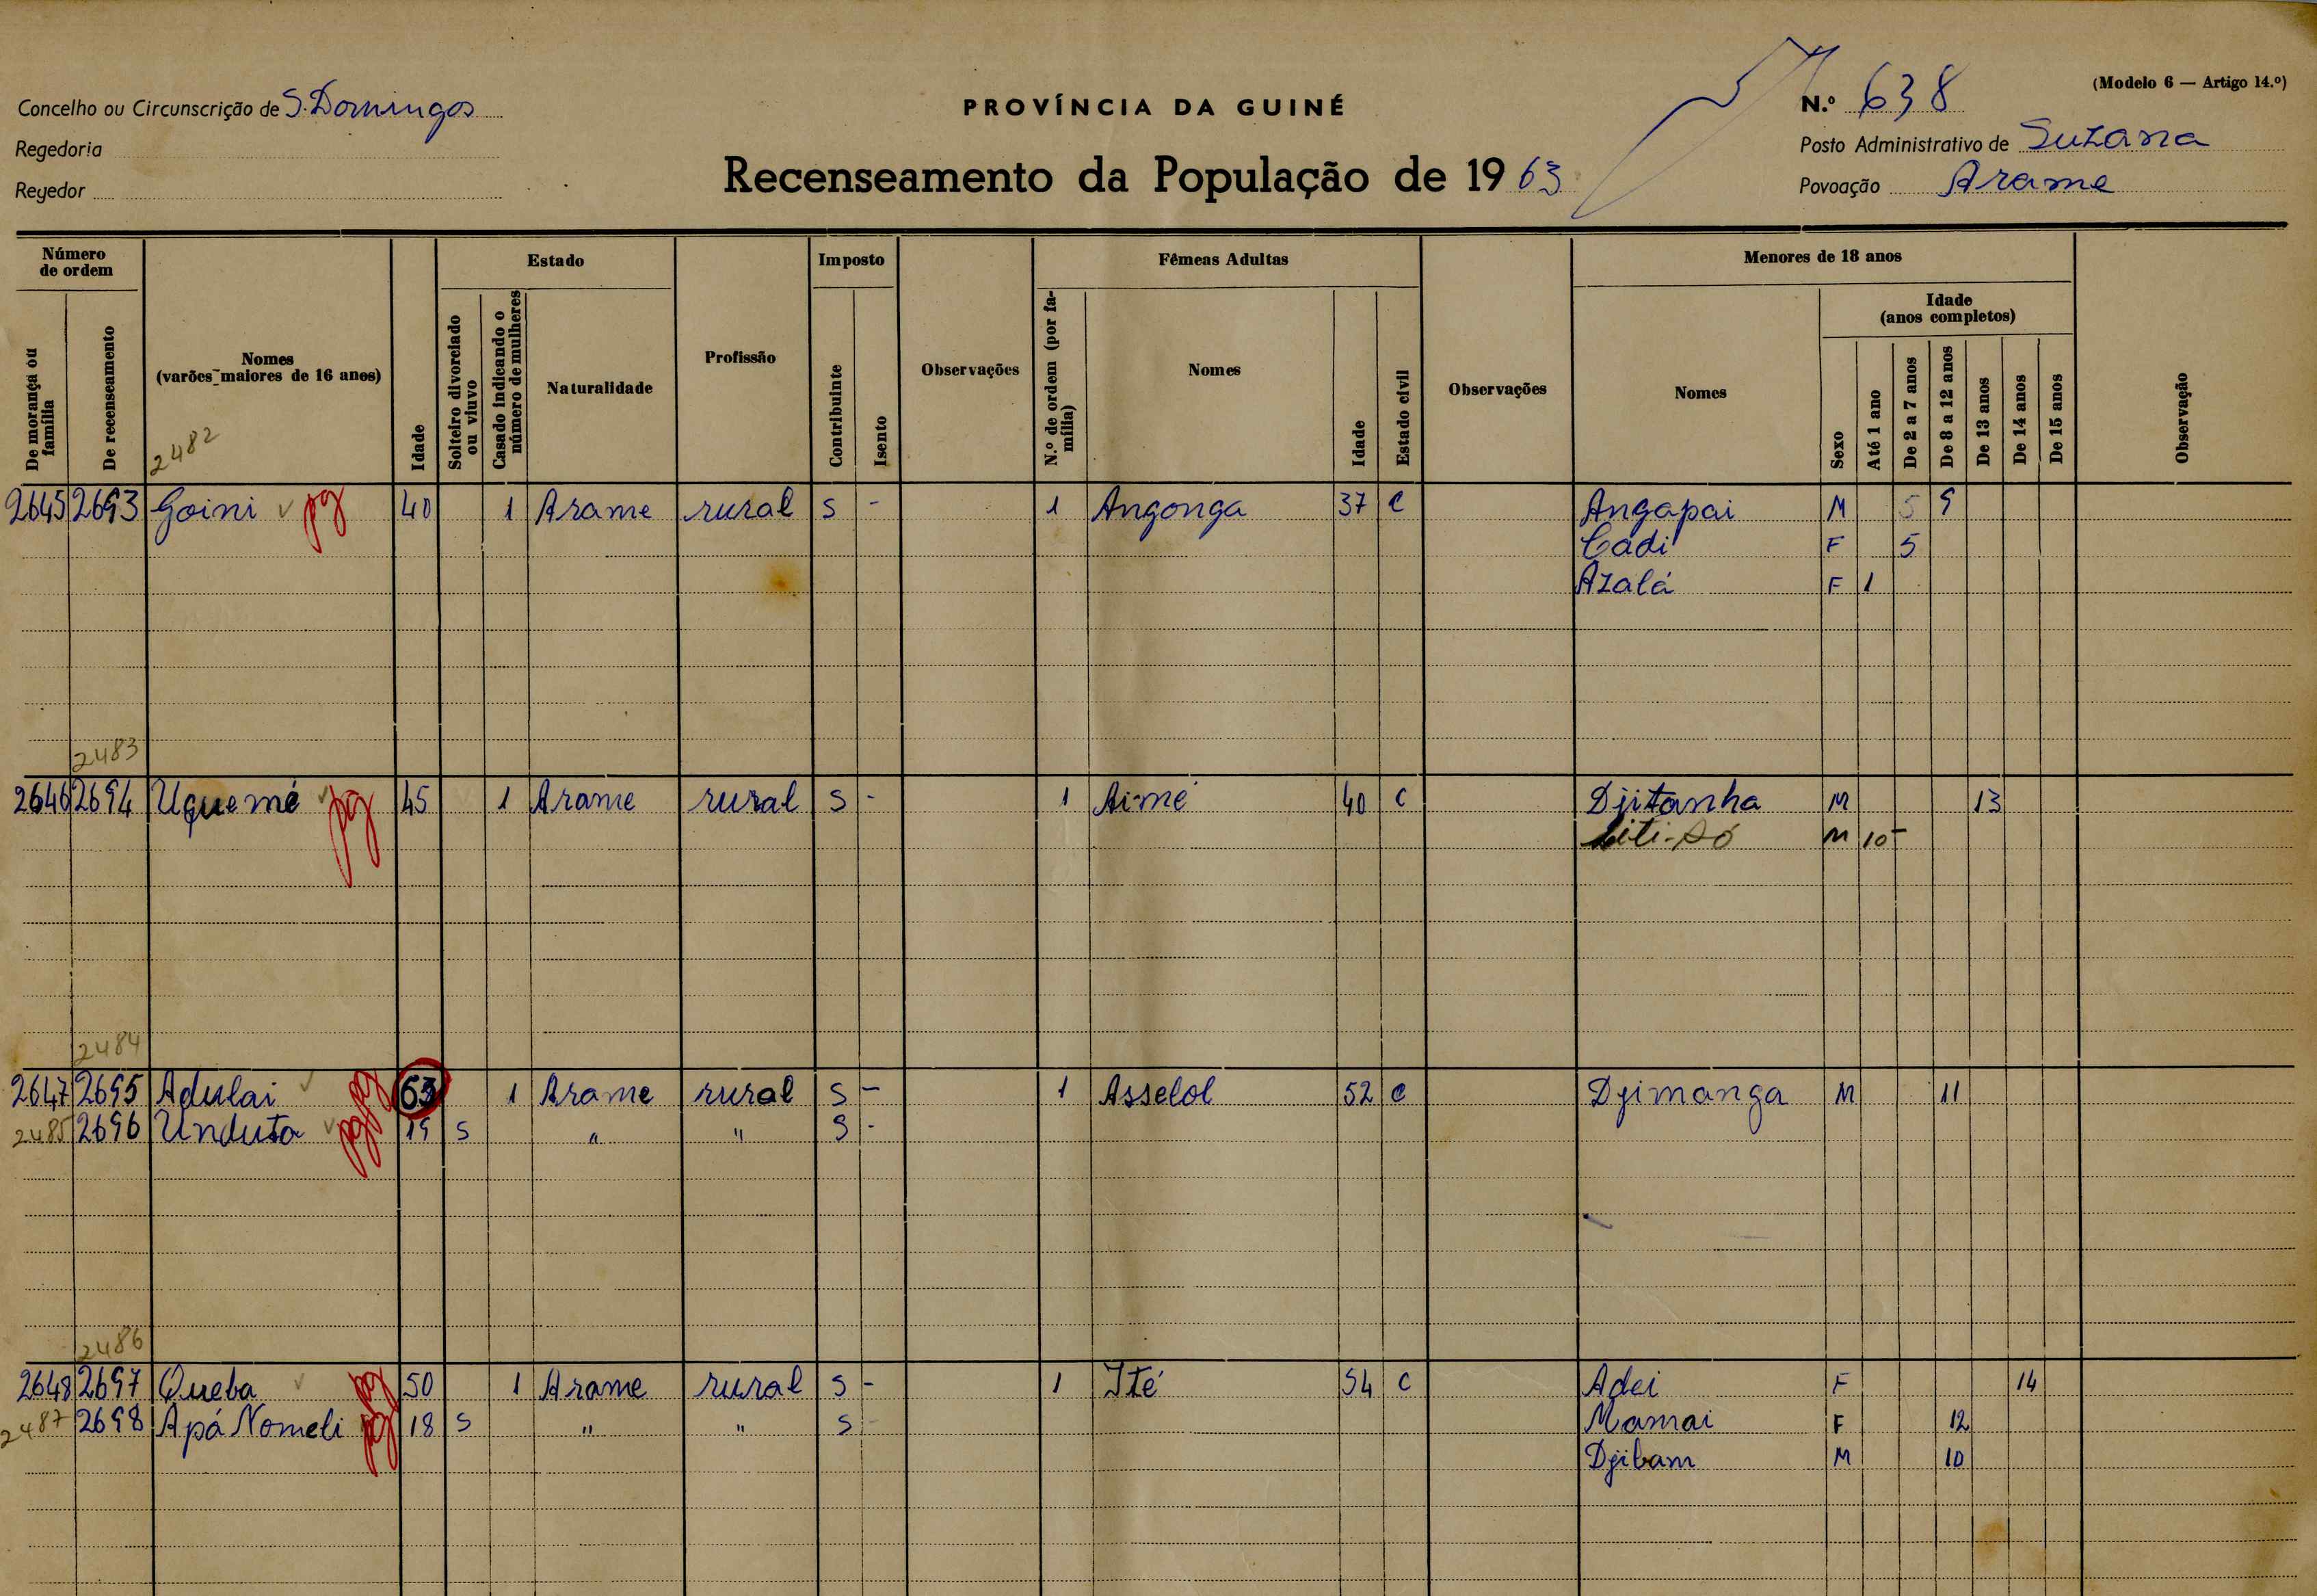 Concelho ou Circunscrição de S. Domingos
Regedoria
Regedor
PROVÍNCIA DA GUINÉ
Recenseamento da População de 1963
(Modelo 6 — Artigo 14.º)
N.º 638
Posto Administrativo de Suzana
Povoação Arame
Número de ordem
De morança ou família
De recenseamento
Nomes (varões maiores de 16 anos)
2482
Idade
Estado
Solteiro divorciado ou viuvo
Casado indicando o número de mulheres
Naturalidade
Profissão
Imposto
Contribuinte
Isento
Observações
Fêmeas Adultas
N.º de ordem (por família)
Nomes
Idade
Estado civil
Observações
Menores de 18 anos
Nomes
Idade (anos completos)
Sexo
Até 1 ano
De 2 a 7 anos
De 8 a 12 anos
De 13 anos
De 14 anos
De 15 anos
Observação
2645 2693 Goini pg 40 1 Arame rural S - 1 Angonga 37 C Angapai M 5 9
Cadi F 5
Azalá F 1
2483
2646 2694 Uquemé pg 45 1 Arame rural S - 1 Aimé 40 C Djitanha M 13
M 10
2484
2647 2695 Adulai pg 63 1 Arame rural S - 1 Asselol 52 C Djimanga M 11
2485 2696 Unduta pg 19 S " " S -
2486
2648 2697 Queba pg 50 1 Arame rural S - 1 Ité 54 C Adei F 14
2487 2698 Apá Nomeli pg 18 S " " S - Mamai F 12
Djibam M 10